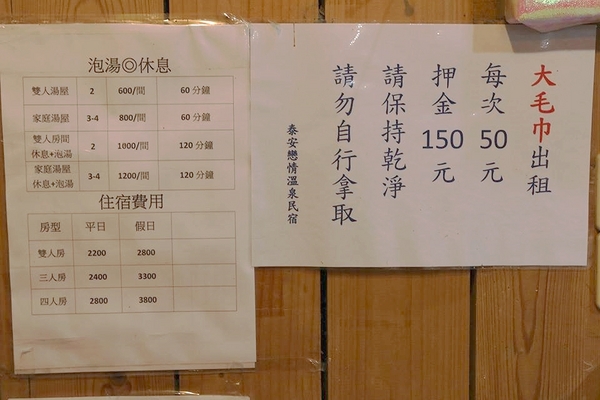 泡湯◎休息
雙人湯屋 2 600/間 60分鐘
家庭湯屋 3-4 800/間 60分鐘
雙人房間 休息+泡湯 2 1000/間 120分鐘
家庭湯屋 休息+泡湯 3-4 1200/間 120分鐘
住宿費用
房型 平日 假日
雙人房 2200 2800
三人房 2400 3300
四人房 2800 3800
大毛巾出租
每次50元
押金150元
請保持乾淨
請勿自行拿取
泰安戀情溫泉民宿